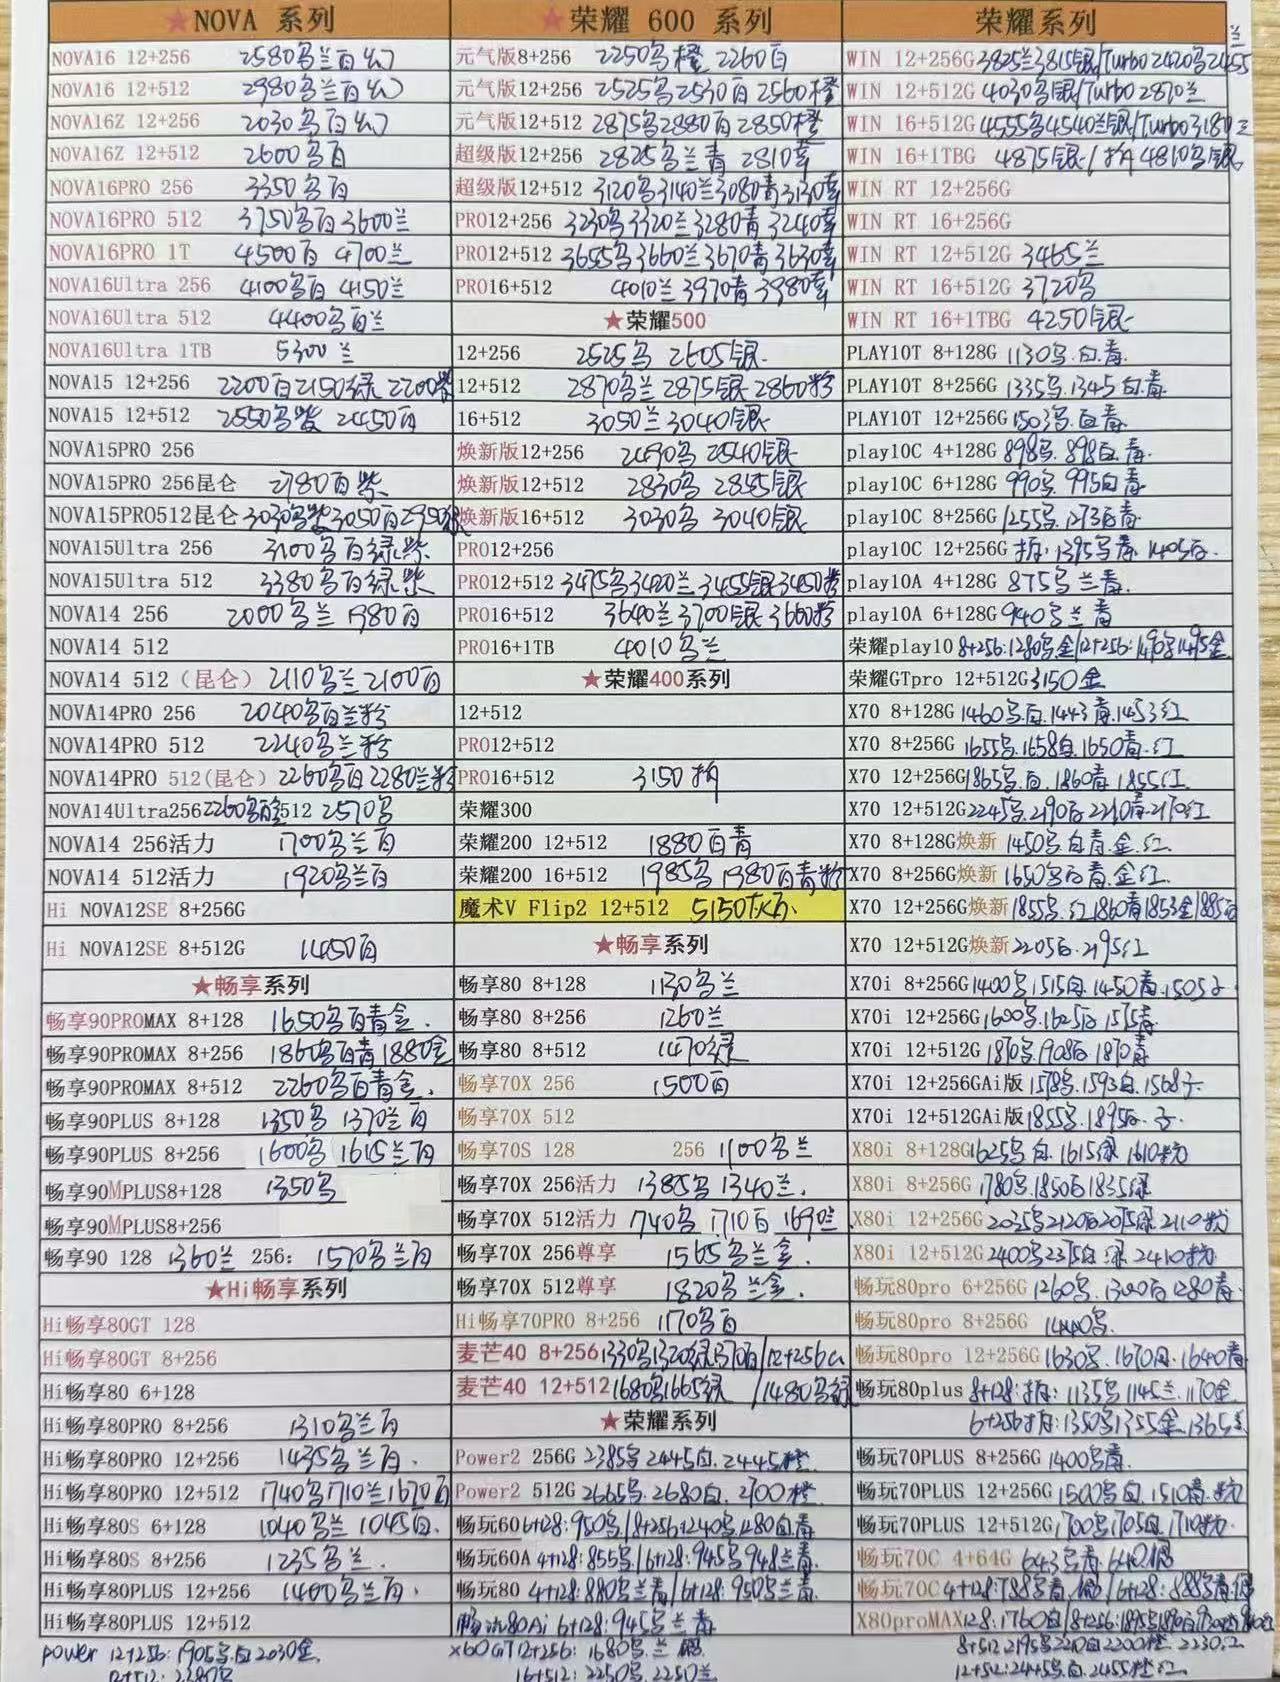 ★NOVA 系列
NOVA16 12+256 2580乌兰白幻
NOVA16 12+512 2980乌兰白幻
NOVA16Z 12+256 2030乌白幻
NOVA16Z 12+512 2600乌白
NOVA16PRO 256 3350乌白
NOVA16PRO 512 3750乌白3600兰
NOVA16PRO 1T 4500白 4700兰
NOVA16Ultra 256 4100乌白 4150兰
NOVA16Ultra 512 4400乌白兰
NOVA16Ultra 1TB 5300 兰
NOVA15 12+256 2200白2150绿 2200紫
NOVA15 12+512 2550乌紫 2450白
NOVA15PRO 256
NOVA15PRO 256昆仑 2780白紫
NOVA15PRO512昆仑3030乌紫3050白2950绿
NOVA15Ultra 256 3100乌白绿紫
NOVA15Ultra 512 3380乌白绿紫
NOVA14 256 2000乌兰 1980白
NOVA14 512
NOVA14 512（昆仑） 2110乌兰2100白
NOVA14PRO 256 2040乌白兰粉
NOVA14PRO 512 2240乌兰粉
NOVA14PRO 512(昆仑) 2260乌白2280兰粉
NOVA14Ultra256 2260乌白金512 2570乌
NOVA14 256活力 1700乌兰白
NOVA14 512活力 1920乌兰白
Hi NOVA12SE 8+256G
Hi NOVA12SE 8+512G 1450白
★畅享系列
畅享90PROMAX 8+128 1650乌白青金.
畅享90PROMAX 8+256 1860乌白青1880金
畅享90PROMAX 8+512 2260乌白青金.
畅享90PLUS 8+128 1350乌 1370兰白
畅享90PLUS 8+256 1600乌 1615兰白
畅享90MPLUS8+128 1350乌
畅享90MPLUS8+256
畅享90 128 1360兰 256: 1570乌兰白
★Hi畅享系列
Hi畅享80GT 128
Hi畅享80GT 8+256
Hi畅享80 6+128
Hi畅享80PRO 8+256 1310乌兰白
Hi畅享80PRO 12+256 1435乌兰白.
Hi畅享80PRO 12+512 1740乌1710兰1670白
Hi畅享80S 6+128 1040乌兰 1045白.
Hi畅享80S 8+256 1235乌兰.
Hi畅享80PLUS 12+256 1400乌兰白.
Hi畅享80PLUS 12+512
power 12+256: 1905乌.白2030金.
12+512: 2280乌
★荣耀 600 系列
元气版8+256 2250乌橙 2260白
元气版12+256 2525乌2530白2560橙
元气版12+512 2875乌2880白2850橙
超级版12+256 2825乌兰青 2810幸
超级版12+512 3120乌3140兰3080青3130幸
PRO12+256 3230乌3320兰3280青3240幸
PRO12+512 3655乌3660兰3670青3630幸
PRO16+512 4010兰3970青3980幸
★荣耀500
12+256 2525乌 2605银.
12+512 2870乌兰2875银2860粉
16+512 3050兰3040银
焕新版12+256 2490乌 2540银
焕新版12+512 2830乌 2855银
焕新版16+512 3030乌 3040银
PRO12+256
PRO12+512 3475乌3420兰3455银3450粉
PRO16+512 3640兰3700银3660粉
PRO16+1TB 4010乌兰
★荣耀400系列
12+512
PRO12+512
PRO16+512 3150拆
荣耀300
荣耀200 12+512 1880白青
荣耀200 16+512 1985乌1980白青粉
魔术V Flip2 12+512 5150灰白.
★畅享系列
畅享80 8+128 1130乌兰
畅享80 8+256 1260兰
畅享80 8+512 1470绿
畅享70X 256 1500白
畅享70X 512
畅享70S 128 256 1100乌兰
畅享70X 256活力 1385乌1340兰.
畅享70X 512活力 1740乌 1710白 1690兰
畅享70X 256尊享 1565乌兰金.
畅享70X 512尊享 1820乌兰金.
Hi畅享70PRO 8+256 1170乌白
麦芒40 8+256 1330乌1320绿 /12+256G
麦芒40 12+512 1680乌1665绿 /1480乌绿
★荣耀系列
Power2 256G 2385乌2445白.2445橙.
Power2 512G 2665乌.2680白.2700橙.
畅玩60 6+128:950乌/8+256:1240乌.1280白青
畅玩60A 4+128:855乌/6+128:945乌948兰青.
畅玩80 4+128:880乌兰青/6+128:950乌兰青.
畅玩80Ai 6+128:945乌兰青
X60GT12+256: 1680乌.兰.银.
16+512: 2250乌.2250兰
荣耀系列
兰
WIN 12+256G 3825兰3815银/Turbo2420乌2455
WIN 12+512G 4030乌银/Turbo2870兰
WIN 16+512G4555乌4540兰银/Turbo3180兰
WIN 16+1TBG 4875银/拆4810乌银
WIN RT 12+256G
WIN RT 16+256G
WIN RT 12+512G 3465兰
WIN RT 16+512G 3720乌
WIN RT 16+1TBG 4250银
PLAY10T 8+128G 1130乌.白青.
PLAY10T 8+256G 1335乌.1345白青.
PLAY10T 12+256G 1503乌.白青.
play10C 4+128G 898乌.898白.青.
play10C 6+128G 990乌.995白青
play10C 8+256G 1255乌.1273白青.
play10C 12+256G 拆:1395乌青.1405白.
play10A 4+128G 875乌兰青.
play10A 6+128G 940乌兰青
荣耀play10 8+256:1280乌金/12+256:1490乌1495金
荣耀GTpro 12+512G3150金
X70 8+128G 1460乌白.1443青.1453红
X70 8+256G 1655乌.1658白.1650青.红
X70 12+256G1865乌.白.1860青.1855红
X70 12+512G2245乌.2190白.2210青2170红
X70 8+128G焕新 1450乌白青.金.红.
X70 8+256G焕新 1650乌白青.金红.
X70 12+256G焕新1855乌.红1860青1853金1885白
X70 12+512G焕新2205白.2195红
X70i 8+256G1400乌1515白.1450青.1505子.
X70i 12+256G1600乌.1625白1575青.
X70i 12+512G 1870乌.1908白1870青
X70i 12+256GAi版1578乌.1593白.1568子.
X70i 12+512GAi版1855乌.1895白.子.
X80i 8+128G1625乌白.1615绿 1610粉
X80i 8+256G 1780乌.1850白1835绿
X80i 12+256G 2035乌2120白2075绿.2110粉
X80i 12+512G2400乌2375白绿.2410粉
畅玩80pro 6+256G 1260乌.1300白1280青.
畅玩80pro 8+256G 1440乌.
畅玩80pro 12+256G1630乌.1670白.1640青
畅玩80plus 8+128:拆:1135乌1145兰.1170金.
6+256拆:1350乌1355金.1365兰
畅玩70PLUS 8+256G 1400乌青.
畅玩70PLUS 12+256G 1500乌白.1510青.粉
畅玩70PLUS 12+512G1700乌1705白1710粉.
畅玩70C 4+64G 643乌青.640银
畅玩70C 4+128:788乌青.银/6+128:888乌青.银
X80proMAX128:1760白/8+256:1895乌
8+512:2195乌2210白2200橙.2230红
12+512:2445乌.白.2455橙红.